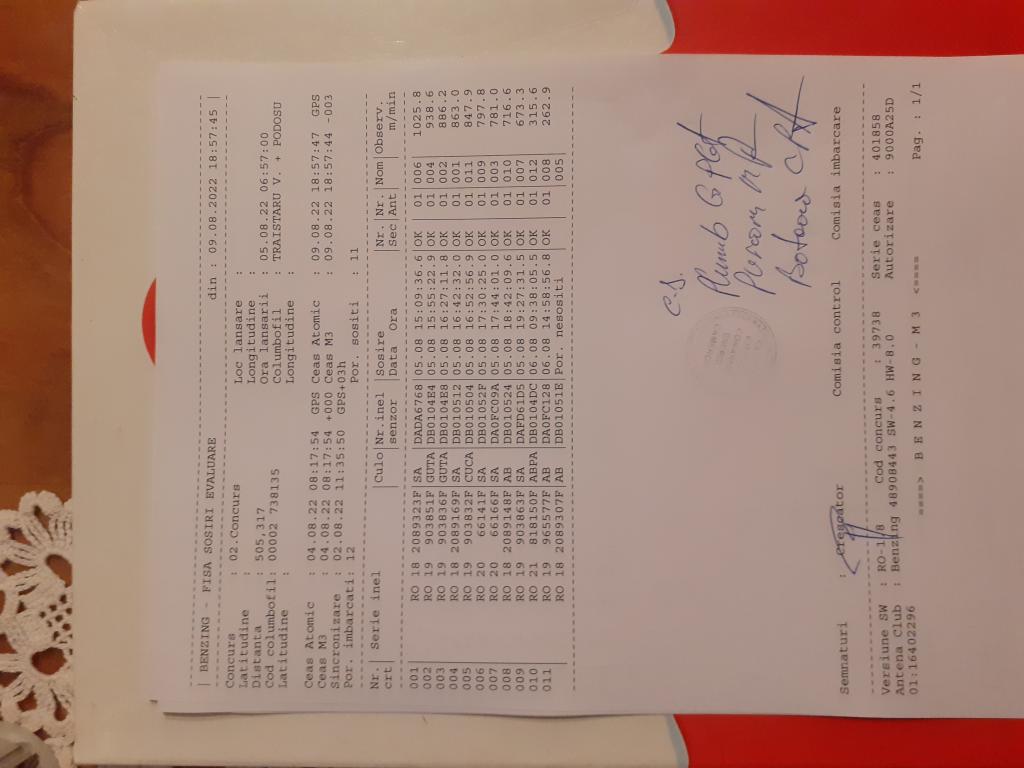 | BENZING - FISA SOSIRI EVALUARE din : 09.08.2022 18:57:45 |
Concurs : 02.Concurs Loc lansare :
Latitudine : Longitudine :
Distanta : 505,317 Ora lansarii : 05.08.22 06:57:00
Cod columbofil: 00002 738135 Columbofil : TRAISTARU V. + PODOSU
Latitudine : Longitudine :
Ceas Atomic : 04.08.22 08:17:54 GPS Ceas Atomic : 09.08.22 18:57:47 GPS
Ceas M3 : 04.08.22 08:17:54 +000 Ceas M3 : 09.08.22 18:57:44 -003
Sincronizare : 02.08.22 11:35:50 GPS+03h
Por. imbarcati: 12 Por. sositi : 11
Nr.| Serie inel |Culo|Nr.inel |Sosire |Nr.|Nr.|Nom|Observ.
crt| | |senzor |Data Ora |sec|Ant| | m/min
001| RO 18 2089323F|SA |DADA6768|05.08 15:09:36.6|OK | 01|006| 1025.8
002| RO 19 903851F|GUTA|DB0104E4|05.08 15:55:22.9|OK | 01|004| 938.6
003| RO 19 903836F|GUTA|DB0104E8|05.08 16:27:11.8|OK | 01|002| 886.2
004| RO 18 2089169F|SA |DB010512|05.08 16:42:32.0|OK | 01|001| 863.0
005| RO 19 903832F|CUCA|DB010504|05.08 16:52:56.9|OK | 01|011| 847.9
006| RO 20 66141F|SA |DB01052F|05.08 17:30:25.0|OK | 01|009| 797.8
007| RO 20 66166F|SA |DA0FC09A|05.08 17:44:01.0|OK | 01|003| 781.0
008| RO 18 2089148F|AB |DB010524|05.08 18:42:09.6|OK | 01|010| 716.6
009| RO 19 903863F|SA |DAFD61D5|05.08 19:27:31.5|OK | 01|007| 673.3
010| RO 21 818150F|ABPA|DB0104DC|06.08 09:38:05.5|OK | 01|012| 315.6
011| RO 19 965577F|AB |DA0FC128|06.08 14:58:56.8|OK | 01|008| 262.9
RO 18 2089307F|AB |DB01051E|Por. nesositi | | |005|
C.S.
Semnaturi : Crescator Comisia control Comisia imbarcare
Versiune SW : RO-1.8 Cod concurs : 39738 Serie ceas : 401858
Antena Club : Benzing 48908443 SW-4.6 HW-8.0 Autorizare : 9000A25D
01:16402296
====> B E N Z I N G - M 3 <==== Pag. : 1/1